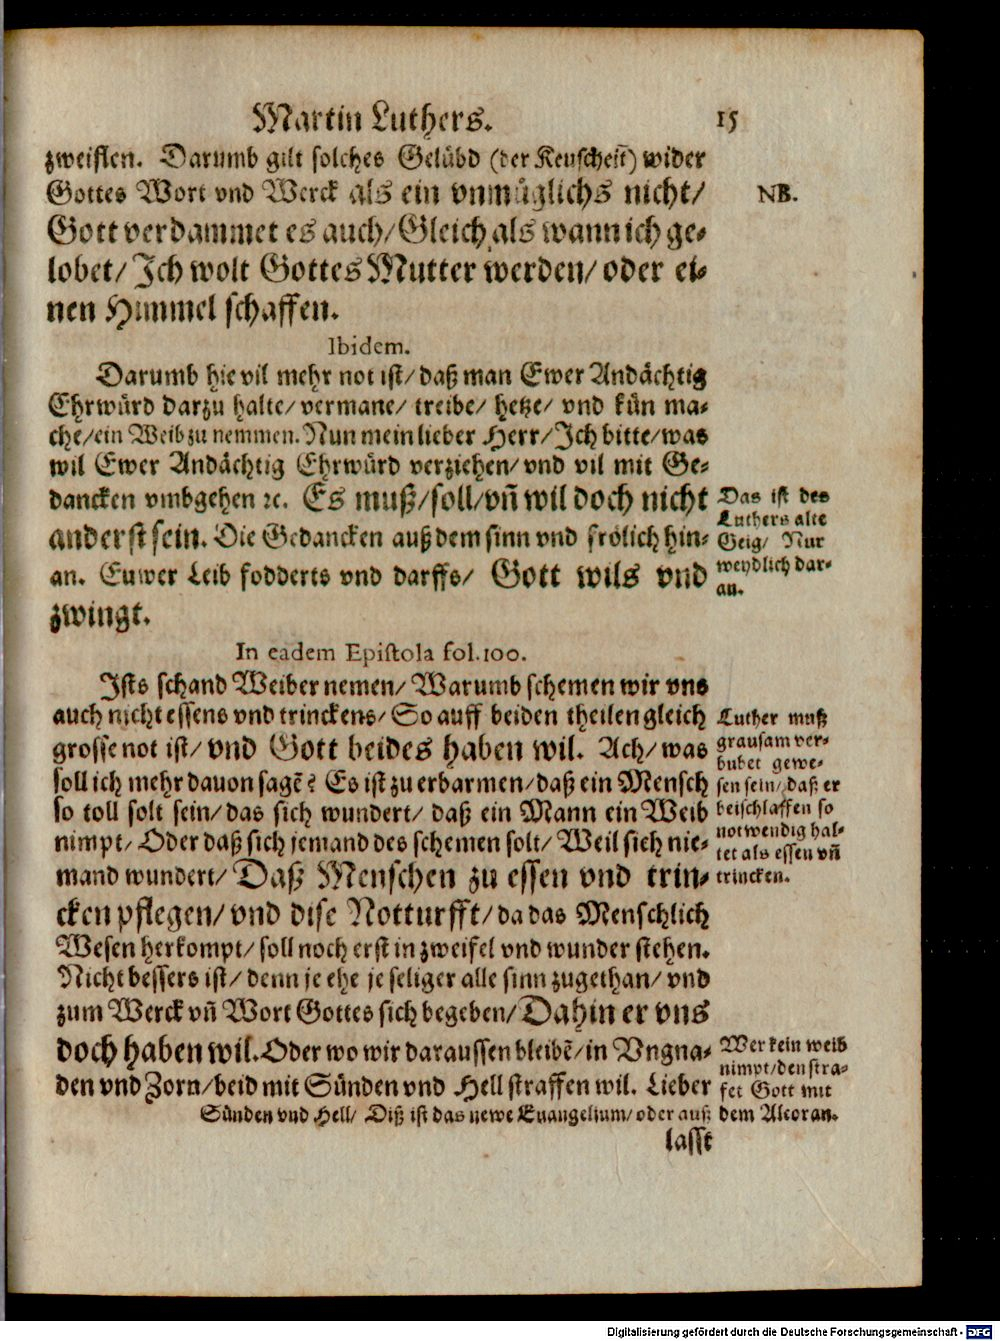 Martin Luthers. 15
zweiflen. Darumb gilt solches Gelübd (der Keuscheit) wider
Gottes Wort vnd Werck als ein vnmüglichs nicht/
NB.
Gott verdammet es auch/ Gleich als wann ich ge-
lobet/ Ich wolt Gottes Mutter werden/ oder ei-
nen Himmel schaffen.
Ibidem.
Darumb hie vil mehr not ist/ daß man Ewer Andächtig
Ehrwürd darzu halte/ vermane/ treibe/ hetze/ vnd kün ma-
che/ ein Weib zu nemmen. Nun mein lieber Herr/ Ich bitte/ was
wil Ewer Andächtig Ehrwürd verziehen/ vnd vil mit Ge-
dancken vmbgehen ꝛc. Es muß/ soll/ vñ wil doch nicht
anderst sein. Die Gedancken auß dem sinn vnd frölich hin-
an. Euwer Leib fodderts vnd darffs/ Gott wils vnd
zwingt.
Das ist des
Luthers alte
Geig/ Nur
weydlich dar-
an.
In eadem Epistola fol. 100.
Ists schand Weiber nemen/ Warumb schemen wir vns
auch nicht essens vnd trinckens/ So auff beiden theilen gleich
grosse not ist/ vnd Gott beides haben wil. Ach/ was
soll ich mehr dauon sagẽ? Es ist zu erbarmen/ daß ein Mensch
so toll solt sein/ das sich wundert/ daß ein Mann ein Weib
nimpt/ Oder daß sich jemand des schemen solt/ Weil sich nie-
mand wundert/ Daß Menschen zu essen vnd trin-
cken pflegen/ vnd dise Notturfft/ da das Menschlich
Wesen herkompt/ soll noch erst in zweifel vnd wunder stehen.
Luther muß
grausam ver-
bubet gewe-
sen sein/ daß er
beischlaffen so
notwendig hal-
tet als essen vñ
trincken.
Nicht bessers ist/ denn je ehe je seliger alle sinn zugethan/ vnd
zum Werck vñ Wort Gottes sich begeben/ Dahin er vns
doch haben wil. Oder wo wir daraussen bleibẽ/ in Vngna-
den vnd Zorn/ beid mit Sünden vnd Hell straffen wil. Lieber
Wer kein weib
nimpt/ den stra-
fet Gott mit
Sünden vnd Hell/ Diß ist das newe Euangelium/ oder auß dem Alcoran.
lasst
Digitalisierung gefördert durch die Deutsche Forschungsgemeinschaft - DFG